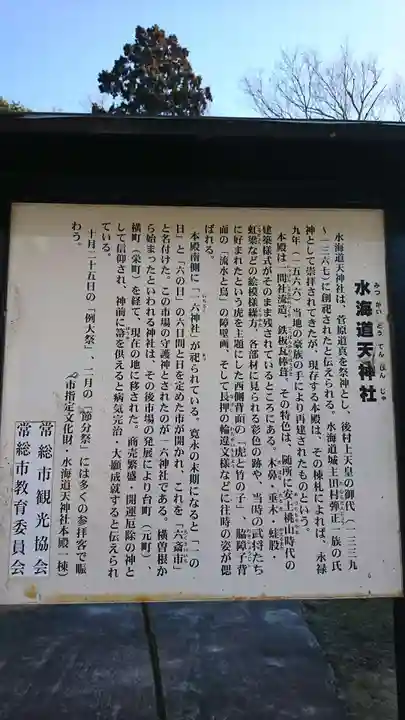 水海道天神社
みつかいどうてんじんしゃ
水海道天神社は、菅原道真を祭神とし、後村上天皇の御代（一三三九
～一三六七）に創祀されたと伝えられる。水海道城主田村弾正一族の氏
神として崇拝されてきたが、現存する本殿は、その棟札によれば、永禄
九年（一五六六）当地の豪族の手により再建されたものという。
本殿は一間社流造、鉄板瓦棒葺。その特色は、随所に安土桃山時代の
建築様式がそのまま残されているところにある。木鼻・垂木・蛙股・
虹梁などの絵模様繰方、各部材に見られる彩色の跡や、当時の武将たち
に好まれたという虎を主題にした西側背面の「虎と竹の子」、脇障子背
面の「流水と鳥」の障壁画、そして長押の輪違文様などに往時の姿が偲
ばれる。
本殿南側に「一六神社」が祀られている。寛永の末期になると「一の
日」と「六の日」の六日間と日を定めた市が開かれ、これを「六斎市」
と名付けた。この市場の守護神とされたのが一六神社である。横曽根か
ら始まったといわれる神社は、その後市場の発展により台町（元町）、
横町（栄町）を経て、現在の地に移された。商売繁盛・開運厄除の神と
して信仰され、神前に箒を供えると病気完治・大願成就すると伝えられ
ている。
十月二十五日の「例大祭」、二月の「節分祭」には多くの参拝客で賑
わう。
（市指定文化財・水海道天神社本殿一棟）
常総市観光協会
常総市教育委員会